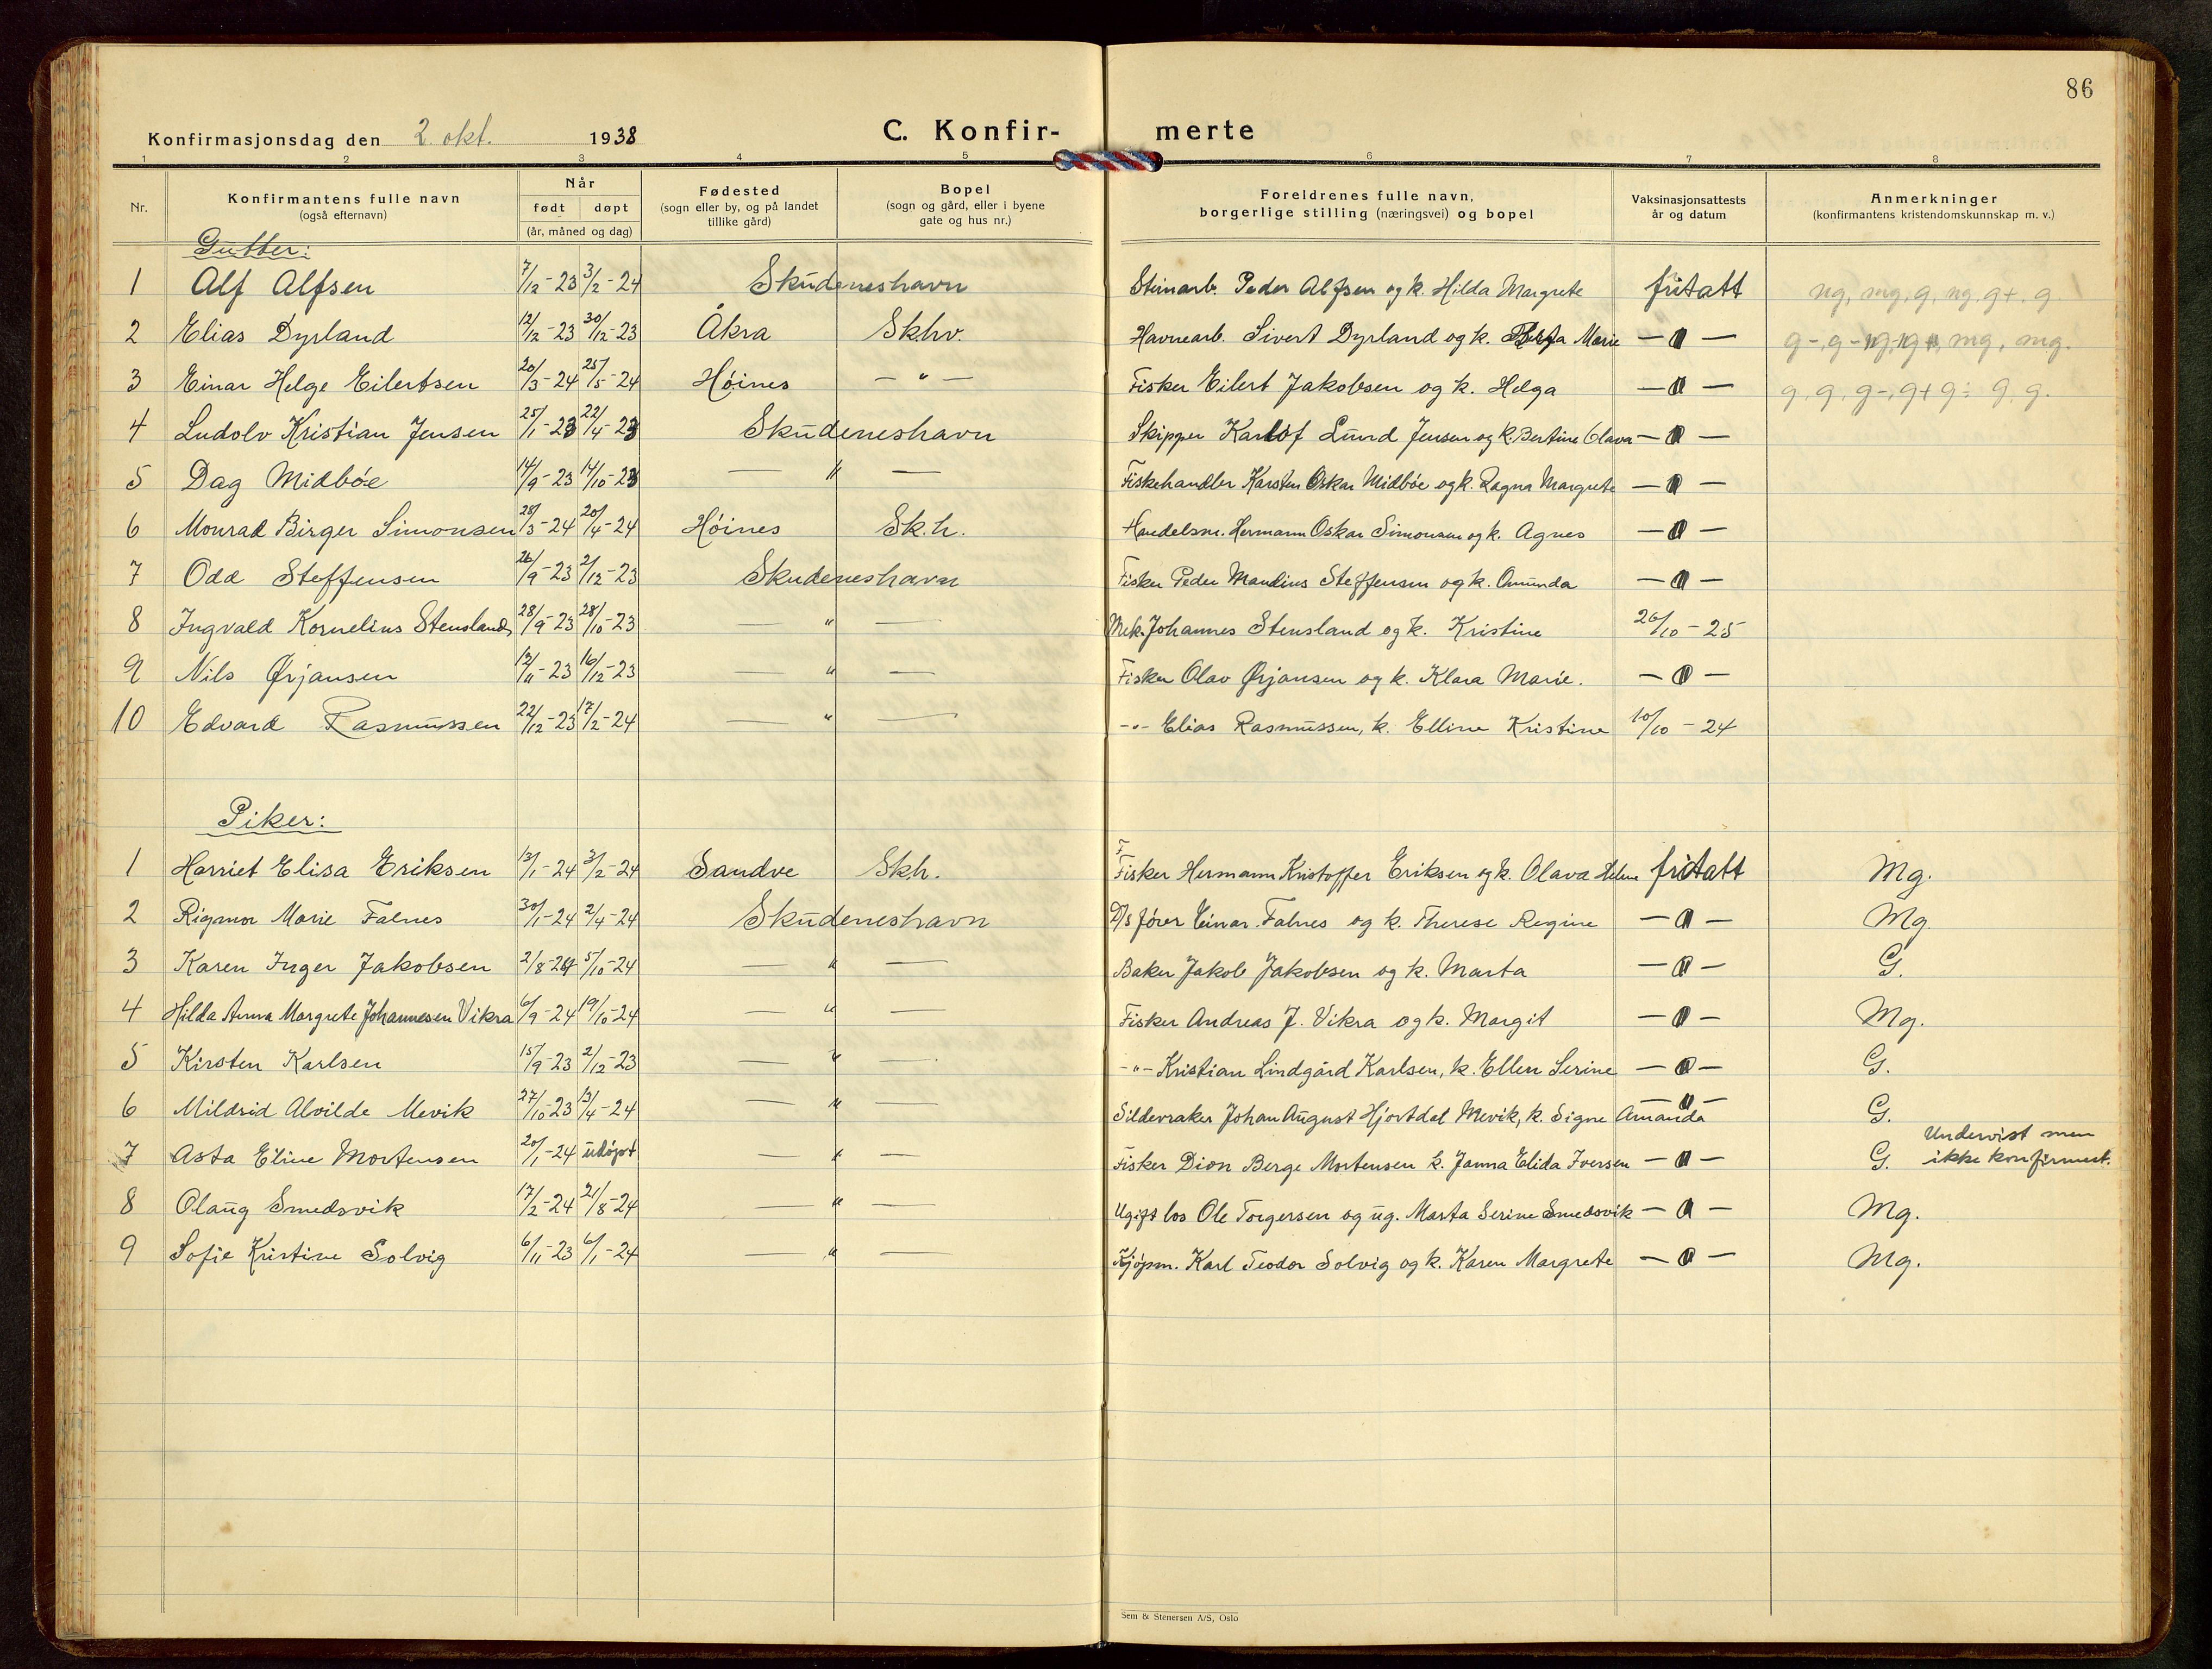 86
Konfirmasjonsdag den 2. okt. 1938 C. Konfir- merte
1 2 3 4 5 6 7 8
Nr. Konfirmantens fulle navn (også efternavn) Når født døpt (år, måned og dag) Fødested (sogn eller by, og på landet tillike gård) Bopel (sogn og gård, eller i byene gate og hus nr.) Foreldrenes fulle navn, borgerlige stilling (næringsvei) og bopel Vaksinasjonsattests år og datum Anmerkninger (konfirmantens kristendomskunnskap m. v.)
Gutter:
1 Alf Alfsen 7/12-23 3/2-24 Skudeneshavn Steinarb. Peder Alfsen og k. Hilda Margrete fritatt ng, mg, g, ng, g+, g
2 Elias Dyrland 12/12-23 30/12-23 Åkra Skhv. Havnearb. Sivert Dyrland og k. Marie — " — mg, mg.
3 Einar Helge Eilertsen 20/3-24 25/5-24 Høines — " — Fisker Eilert Jakobsen og k. Helga — " — g, g, g-, g+ g÷ g, g.
4 Ludolv Kristian Jensen 25/1-23 22/4-23 Skudeneshavn Skipper Karlof Lund Jensen og k. Bertine Olava — " —
5 Dag Midbøe 14/9-23 14/10-23 — " — Fiskehandler Karsten Oskar Midbøe og k. Ragna Margrete — " —
6 Monrad Birger Simonsen 28/3-24 20/4-24 Høines Sk.h. Handelsm. Hermann Oskar Simonsen og k. Agnes — " —
7 Odd Steffensen 26/9-23 2/12-23 Skudeneshavn Fisker Peder Mandius Steffensen og k. Omunda — " —
8 Ingvald Kornelius Stensland 28/9-23 28/10-23 — " — Mek. Johannes Stensland og k. Kristine 26/10-25
9 Nils Ørjansen 12/11-23 16/12-23 — " — Fisker Olav Ørjansen og k. Klara Marie. — " —
10 Edvard Rasmussen 22/12-23 17/2-24 — " — -"- Elias Rasmussen, k. Elline Kristine 10/10-24
Piker:
1 Harriet Elisa Eriksen 13/1-24 3/2-24 Sandve Skh. Fisker Hermann Kristoffer Eriksen og k. Olava Helene fritatt Mg.
2 Rigmor Marie Falnes 30/1-24 2/4-24 Skudeneshavn D/s fører Einar Falnes og k. Therese Regine — " — Mg
3 Karen Inger Jakobsen 2/8-24 5/10-24 — " — Baker Jakob Jakobsen og k. Marta — " — G.
4 Hilda Anna Margrete Johannesen Vikra 6/9-24 19/10-24 — " — Fisker Andreas J. Vikra og k. Margit — " — Mg.
5 Kirsten Karlsen 15/9-23 2/12-23 — " — -"- Kristian Lindgård Karlsen, k. Ellen Serine — " — G.
6 Mildrid Alvilde Mevik 27/10-23 13/4-24 — " — Sildevraker Johan August Hjortdal Mevik, k. Signe Amanda — " — G.
7 Asta Eline Mortensen 20/1-24 udøpt — " — Fisker Dion Berge Mortensen k. Janna Elida Iversen — " — G. Undervist men ikke konfirmert.
8 Olaug Smedsvik 17/2-24 21/8-24 — " — Ugift los Ole Torgersen og ug. Marta Serine Smedsvik — " — Mg.
9 Sofie Kristine Solvig 6/11-23 6/1-24 — " — Kjøpm. Karl Teodor Solvig og k. Karen Margrete — " — Mg.
Sem & Stenersen A/S, Oslo